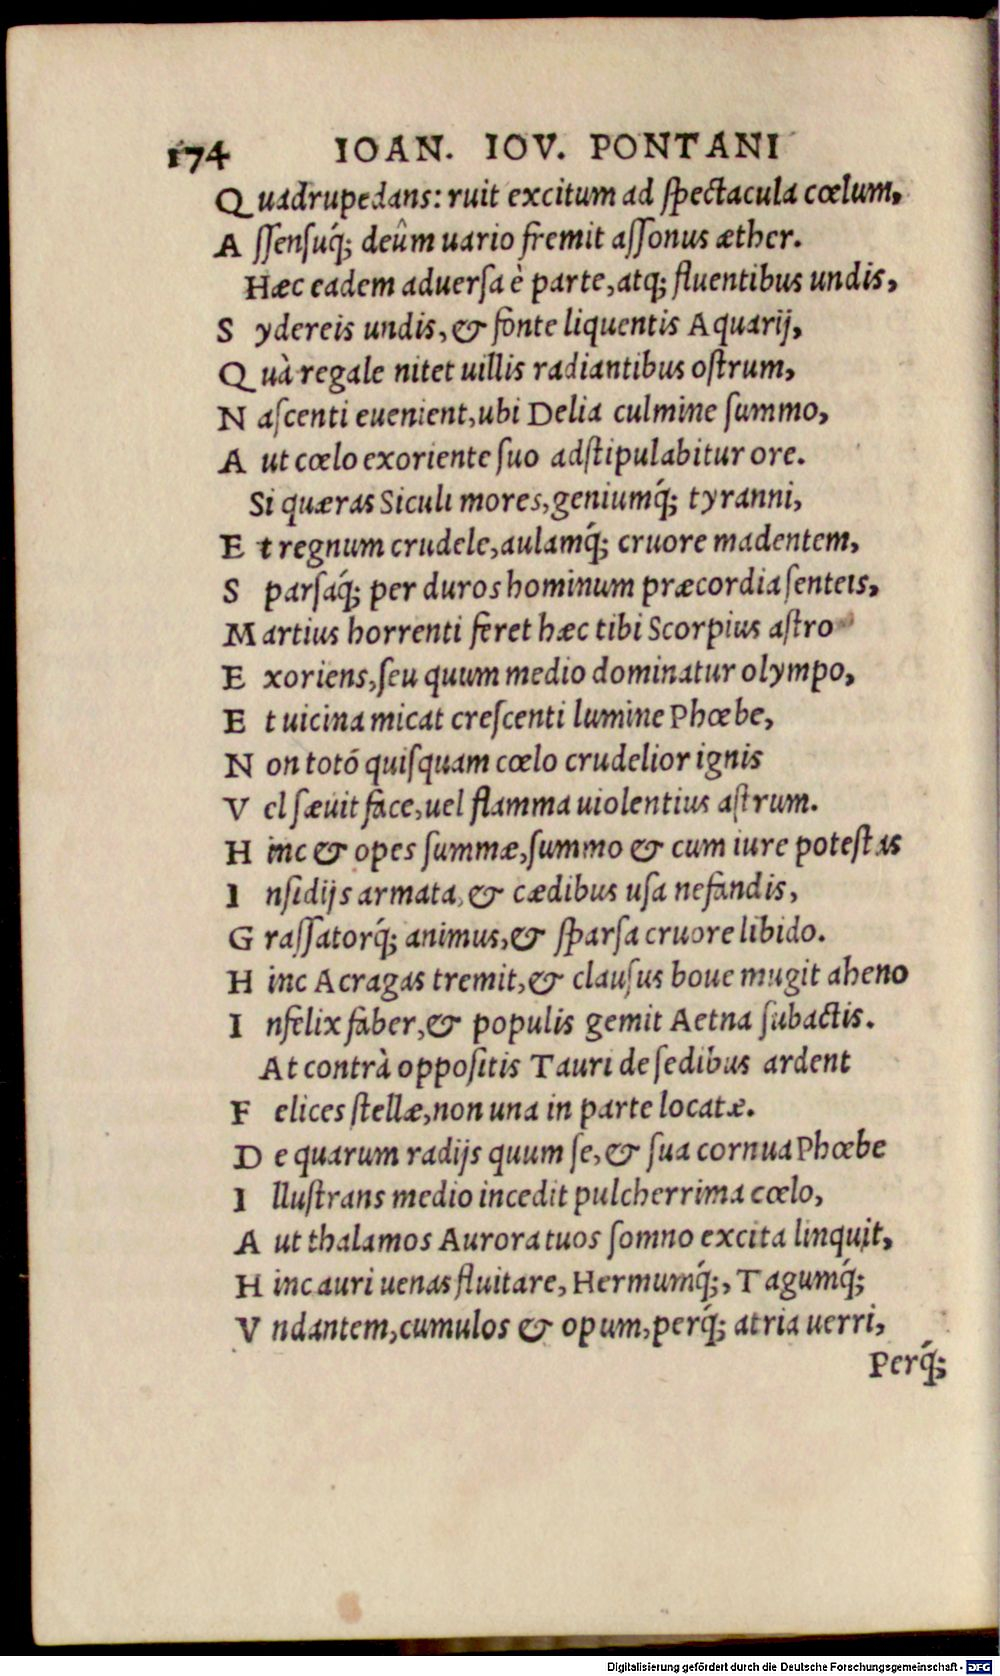 174 IOAN. IOV. PONTANI
Quadrupedans: ruit excitum ad ſpectacula cœlum,
Aſſenſuq́; deûm uario fremit aſſonus æther.
Hæc eadem aduerſa è parte, atq; fluentibus undis,
Sydereis undis, & fonte liquentis Aquarij,
Quà regale nitet uillis radiantibus oſtrum,
Naſcenti euenient, ubi Delia culmine ſummo,
Aut cœlo exoriente ſuo adſtipulabitur ore.
Si quæras Siculi mores, geniumq́; tyranni,
Et regnum crudele, aulamq́; cruore madentem,
Sparſaq́; per duros hominum præcordia ſenteis,
Martius horrenti feret hæc tibi Scorpius aſtro
Exoriens, ſeu quum medio dominatur olympo,
Et uicina micat creſcenti lumine Phœbe,
Non totó quiſquam cœlo crudelior ignis
Vel ſæuit face, uel flamma uiolentius aſtrum.
Hinc & opes ſummæ, ſummo & cum iure poteſtas
Inſidijs armata, & cædibus uſa nefandis,
Graſſatorq́; animus, & ſparſa cruore libido.
Hinc Acragas tremit, & clauſus boue mugit aheno
Infelix faber, & populis gemit Aetna ſubactis.
At contrà oppoſitis Tauri de ſedibus ardent
Felices ſtellæ, non una in parte locatæ.
De quarum radijs quum ſe, & ſua cornua Phœbe
Illuſtrans medio incedit pulcherrima cœlo,
Aut thalamos Aurora tuos ſomno excita linquit,
Hinc auri uenas fluitare, Hermumq́;, Tagumq́;
Vndantem, cumulos & opum, perq́; atria uerri,
Perq́;
Digitalisierung gefördert durch die Deutsche Forschungsgemeinschaft - DFG